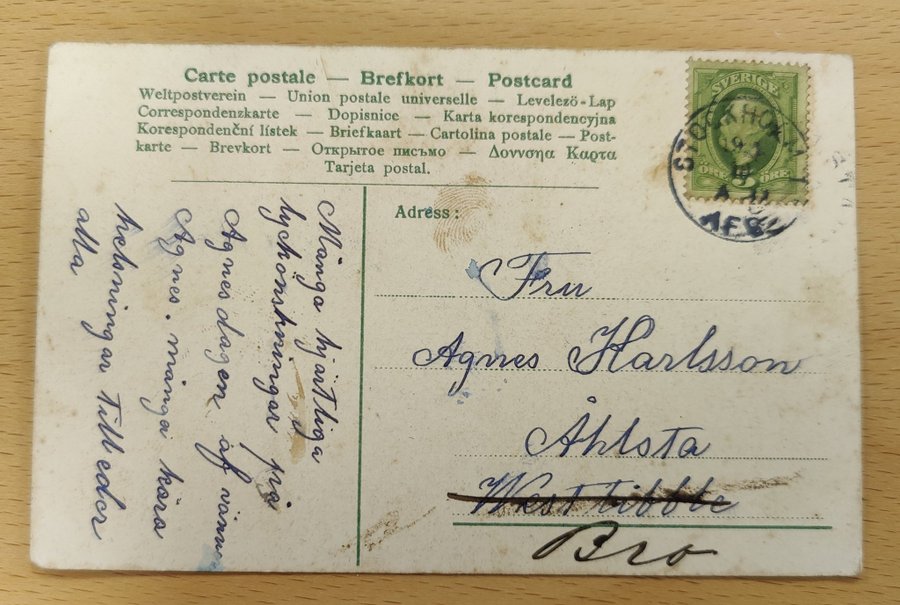 Carte postale — Brefkort — Postcard
Weltpostverein — Union postale universelle — Levelező-Lap
Correspondenzkarte — Dopisnice — Karta korespondencyjna
Korespondenční lístek — Briefkaart — Cartolina postale — Post-
karte — Brevkort — Открытое письмо — Δουνσηα Καρτα
Tarjeta postal.
SVERIGE
ÖRE 5 ÖRE
STOCKHOLM
Adress:
Fru
Agnes Karlsson
Åhlsta
Westtibble
Bro
Många hjärtliga
lyckönskningar på
Agnesdagen af vänn
Agnes. många kära
helsningar till eder
alla